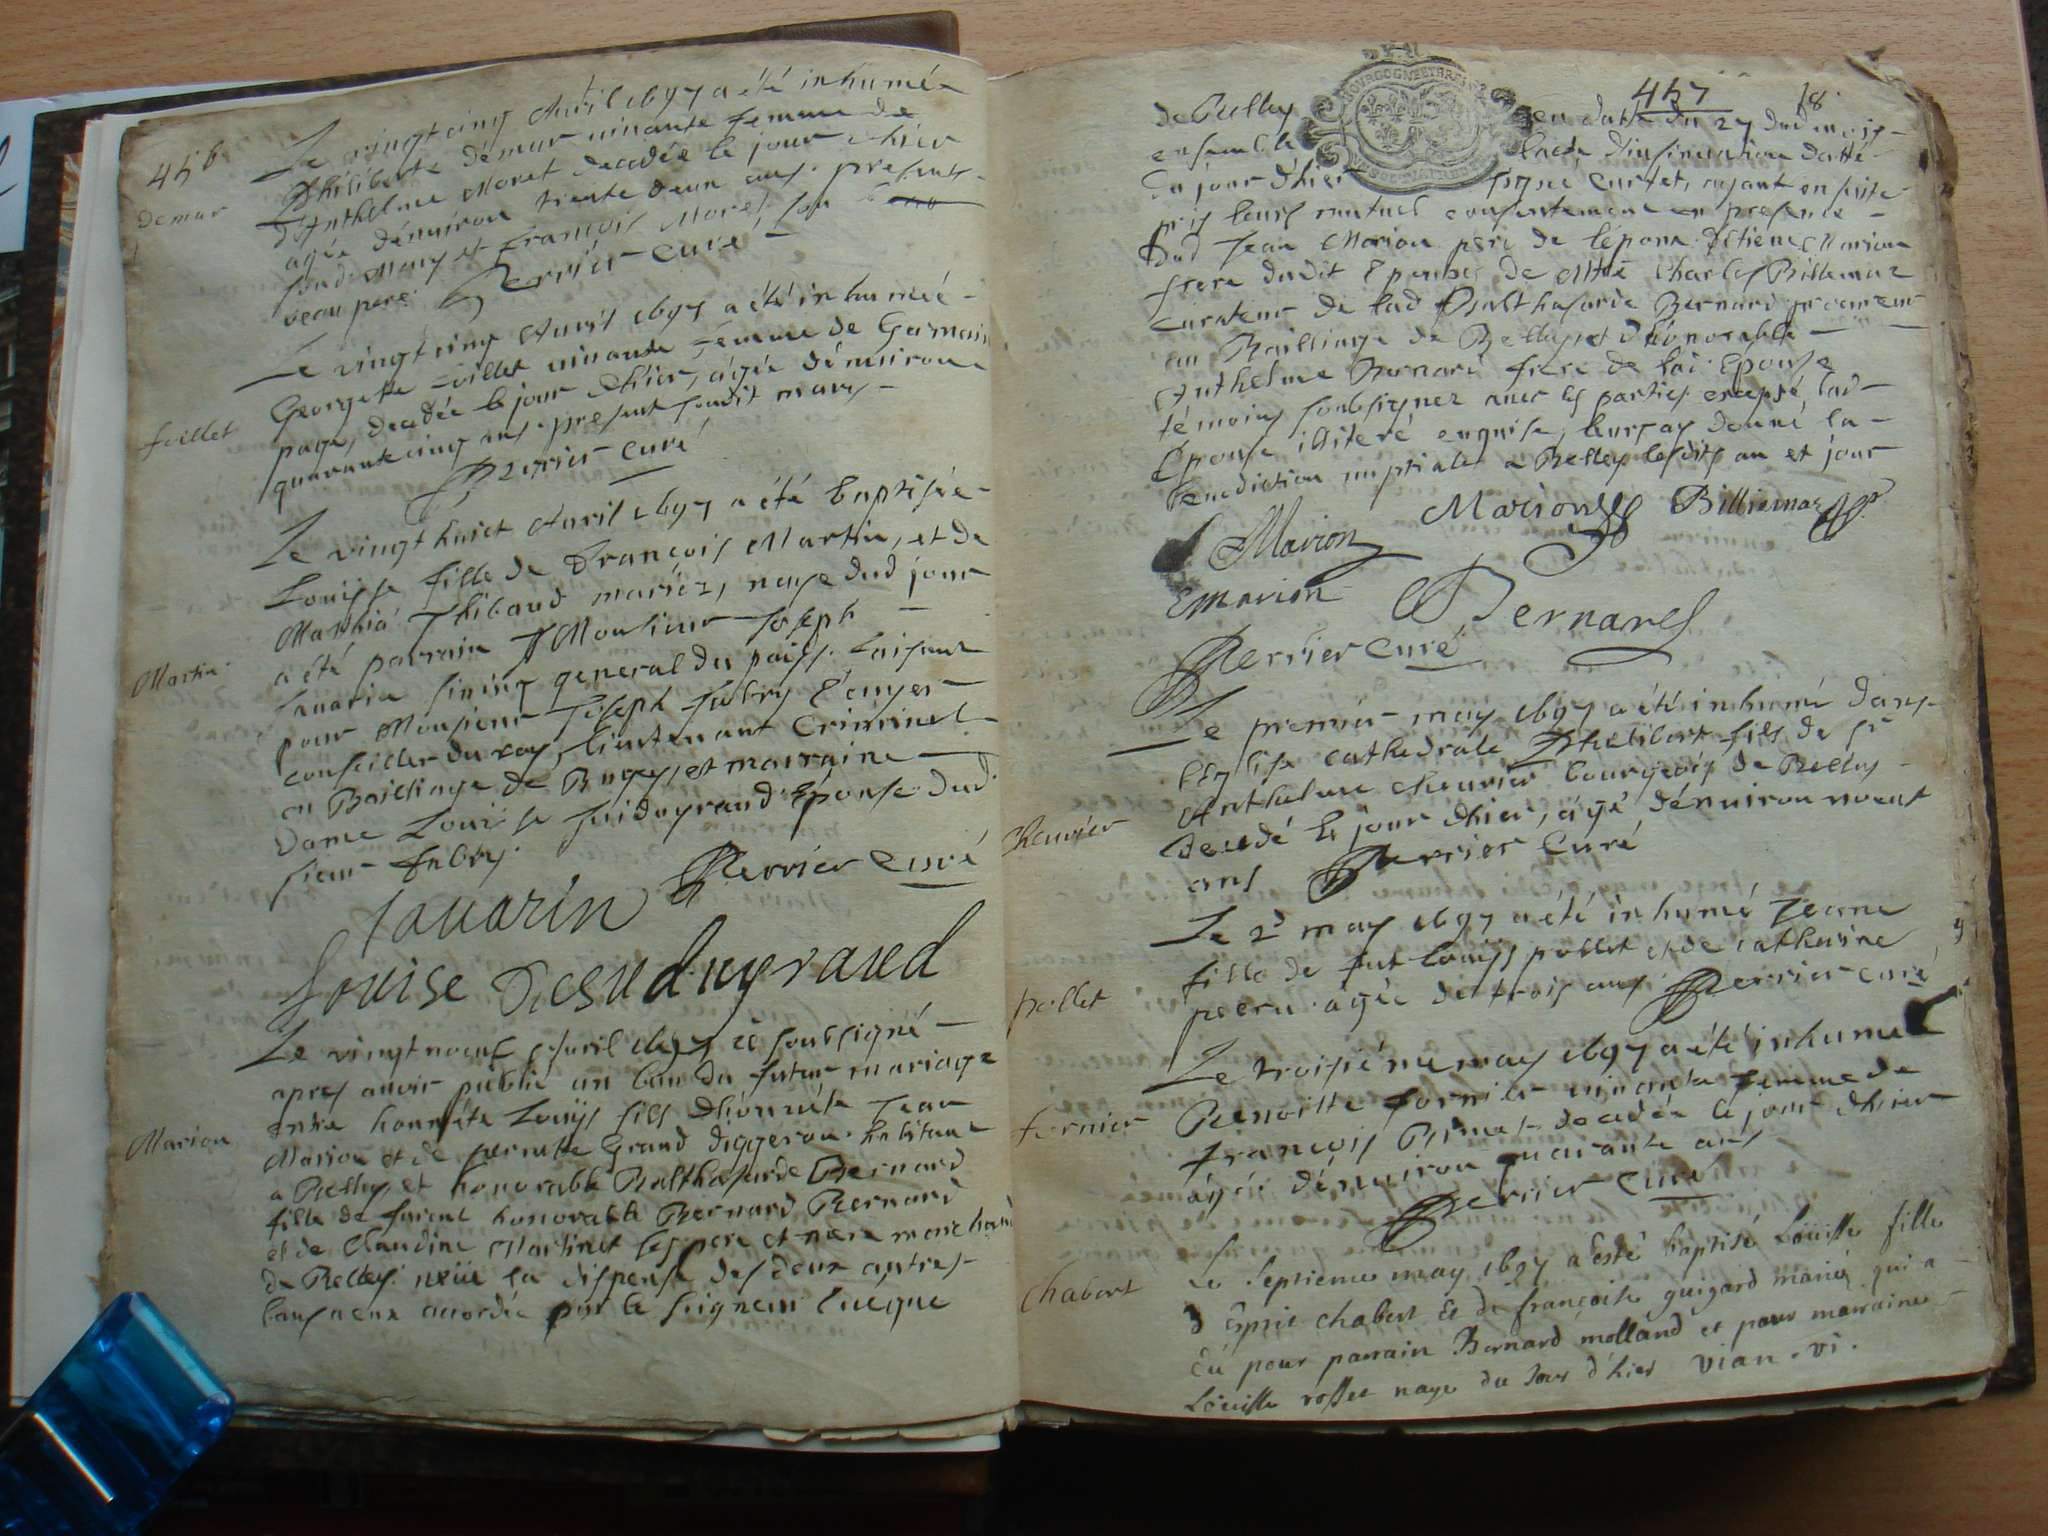 456
Le vingt cinq Avril 1697 a été inhumée
demur
Philiberte démur vivante femme de
d'Anthelme Moret decedée le jour d'hier
agée dénuiron trente deux ans. presents
sond. Mary et François Moret son
beau pere. Perrier curé
Le vingt cinq Avril 1697 a été inhumée
Georgette foillet vivante femme de Germain
foillet
page, decedée le jour d'hier, agée dénuiron
quarante cinq ans. present soudit marÿ
Perrier curé
Le vingt huict Avril 1697 a été baptisée
Louÿse fille de François Martin, et de
Mathia Thibaud mariez, naye dud jour
Martin
a été parrain Monsieur Joseph
sauarin sindiq general du païs. faisant
pour Monsieur Joseph fabry Ecuyer
conseiller du roy, lieutenant Criminel
au Bailliage de Bugey, et marraine
Dame Louise Dugrand Epouse dud
sieur fabry.
Perrier curé
Sauarin
Louise Dugraud
Le vingt noeuf Avril 1697 soubsigné
apres avoir publié un ban du futur mariage
entre honnéte Louÿs fils d'honnéte Jean
Marion
Marion et de pernette Grand diggerou habitant
a Belley, et honorable Balthasarde Bernard
fille de furent honorable Bernard Bernard
et de Claudine Martinet ses pere et mere marchand
de Belley. veüe la dispense des deux autres
bans a eux accordée par le seigneur Eueque
457
18
de Belley en datte du 27 dud mois
ensemble lacte d'insinuation datté
du jour d'hier signé Curtet, ayant ensuitte
pris leurs mutuel consentement en presence
Dud Jean Marion pere de lépoux. Etiene Marion
frere dudit Epoux, de Mtre Charles Billiemaz
curateur de lad Balthasarde Bernard procureur
au Bailliage de Belley, et d'honorable
Anthelme Bernard frere de lad. Epouse
témoins soubsignez avec les parties excepté lad
Epouse illiteré enquise, leur ay donné la
benediction nuptiale a Belley lesdits an et jour
Marion Billiemaz
Marion
E marion Bernard
Perrier curé
Le premier may 1697 a été inhumé dans
lEglise cathedrale Philibert fils de sr
Anthelme cheurier bourgeois de Belley
cheurier
decedé le jour d'hier, agé dénuiron noeuf
ans Perrier Curé
Le 2d may 1697 a été inhumé Jeane
fille de fut Louÿs pollet et de catherine
pollet
peeru agée de trois ans. Perrier curé
Le troisiéme may 1697 a été inhumé
Benoitte fornier vivante femme de
fornier
François Brinet decedée le jour d'hier
agée dénuiron quarante ans
Perrier curé
Le septieme may 1697 a esté baptisé Loüisse fille
chabert
d'Esprit chabert et de françoise guigard mariés qui a
eü pour parrain Bernard molland et pour marraine
Loüisse rosset naye du Jour d'hier vian. vi.